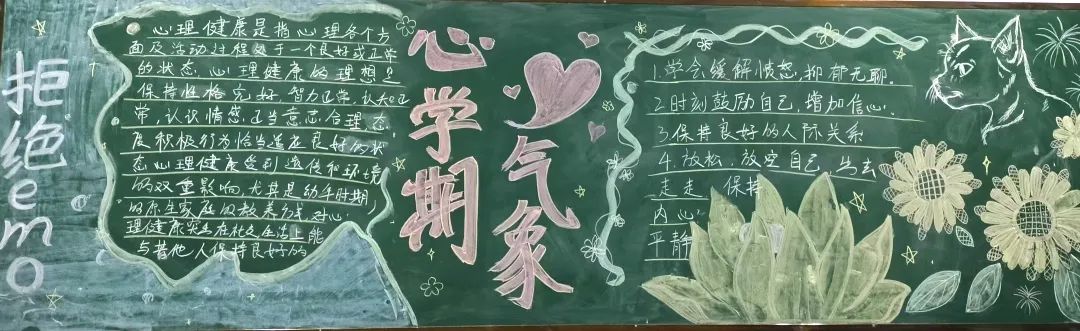 拒绝emo
心理健康是指心理各个方
面及活动过程处于一个良好或正常
的状态.心理健康的理想是
保持性格完好、智力正常、认知正
常,认识情感正当意志合理,态
度积极行为恰当适应良好的状
态心理健康受到遗传和环境
的双重影响,尤其是幼年时期
的原生家庭的教养方式对心
理健康
与其他人保持良好的
心学期
气象
1.学会缓解愤怒,抑郁无聊.
2.时刻鼓励自己,增加信心.
3.保持良好的人际关系
4.放松,放空自己,出去
走走,保持
内心
平静